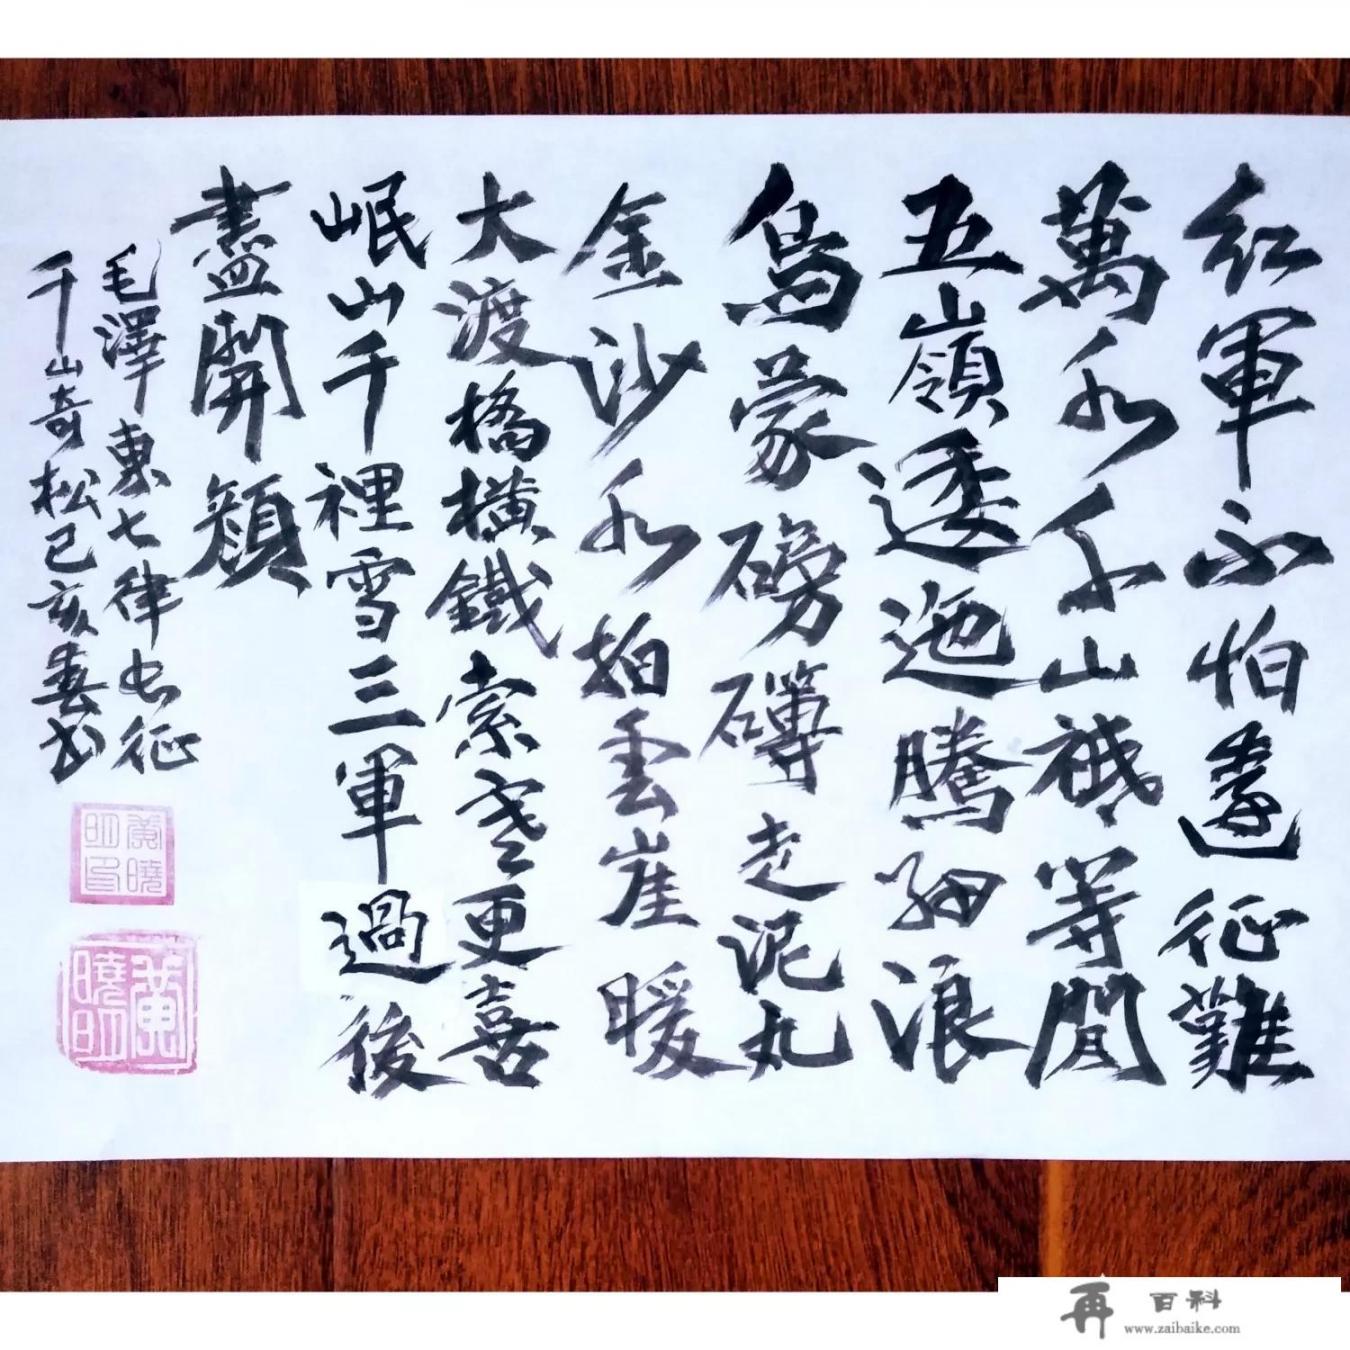 紅軍不怕遠征難
萬水千山祇等閒
五嶺逶迤騰細浪
烏蒙磅礴走泥丸
金沙水拍雲崖暖
大渡橋橫鐵索寒更喜
岷山千裡雪三軍過後
盡開顏
毛澤東七律長征
千山奇松己亥春书
黃曉明印
黃曉明
再百科
www.zaibaike.com